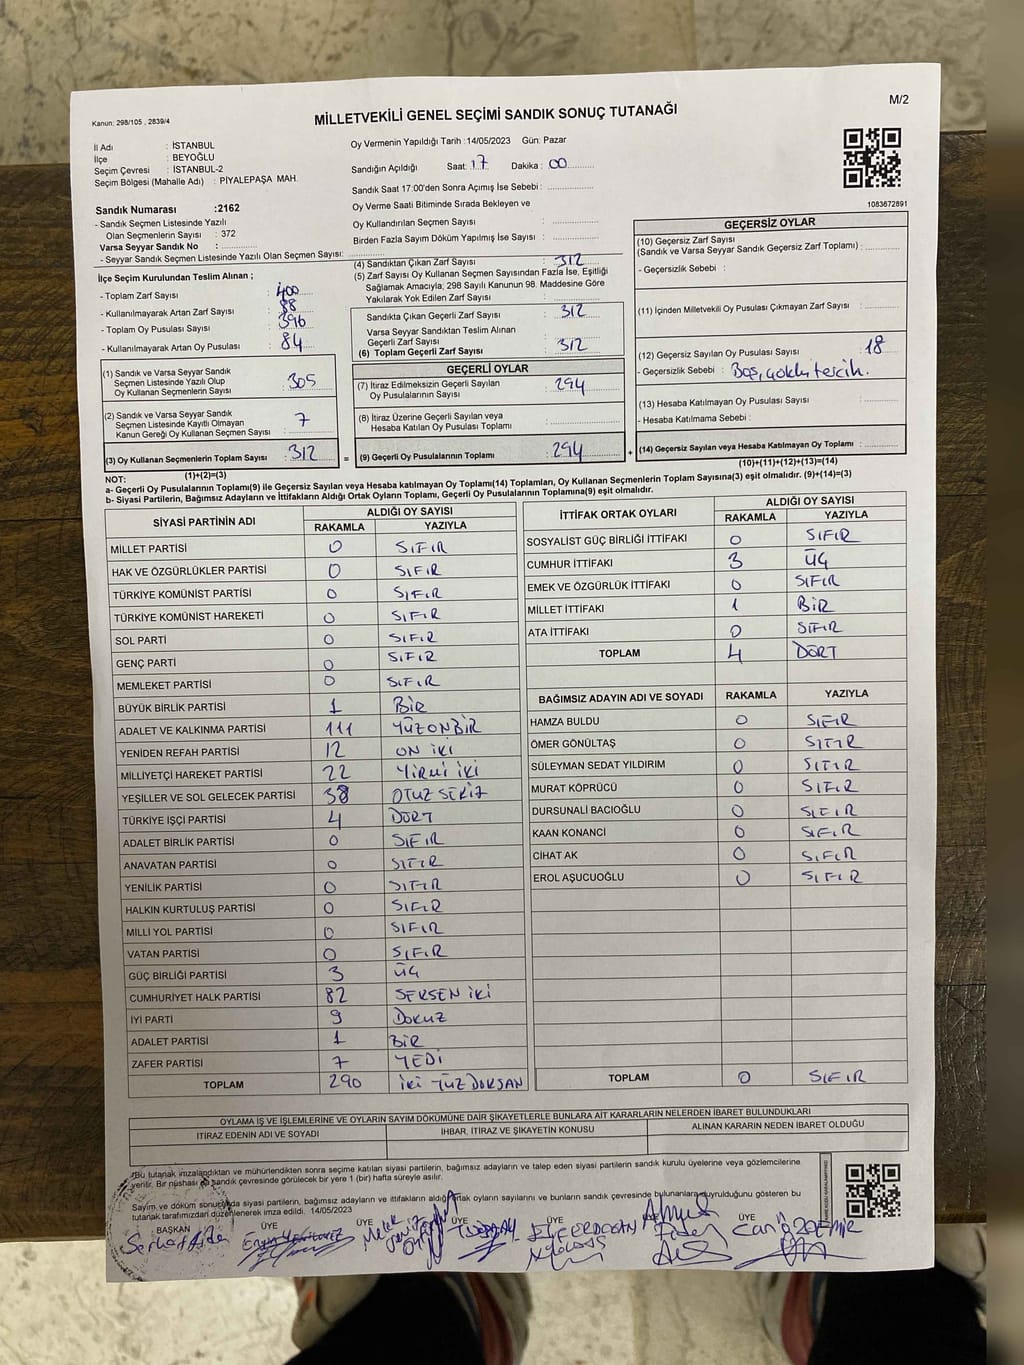 M/2
Kanun: 298/105 , 2839/4
MİLLETVEKİLİ GENEL SEÇİMİ SANDIK SONUÇ TUTANAĞI
İl Adı : İSTANBUL
İlçe : BEYOĞLU
Seçim Çevresi : İSTANBUL-2
Seçim Bölgesi (Mahalle Adı) : PİYALEPAŞA MAH.
Oy Vermenin Yapıldığı Tarih :14/05/2023 Gün: Pazar
Sandığın Açıldığı Saat: 17 Dakika : 00
Sandık Saat 17:00'den Sonra Açımış İse Sebebi :
Oy Verme Saati Bitiminde Sırada Bekleyen ve
Oy Kullandırılan Seçmen Sayısı :
Birden Fazla Sayım Döküm Yapılmış İse Sayısı :
1083672891
Sandık Numarası :2162
- Sandık Seçmen Listesinde Yazılı
Olan Seçmenlerin Sayısı : 372
Varsa Seyyar Sandık No :
- Seyyar Sandık Seçmen Listesinde Yazılı Olan Seçmen Sayısı:
İlçe Seçim Kurulundan Teslim Alınan ;
- Toplam Zarf Sayısı : 400
- Kullanılmayarak Artan Zarf Sayısı : 88
- Toplam Oy Pusulası Sayısı : 396
- Kullanılmayarak Artan Oy Pusulası : 84
(1) Sandık ve Varsa Seyyar Sandık
Seçmen Listesinde Yazılı Olup
Oy Kullanan Seçmenlerin Sayısı : 305
(2) Sandık ve Varsa Seyyar Sandık
Seçmen Listesinde Kayıtlı Olmayan
Kanun Gereği Oy Kullanan Seçmen Sayısı : 7
(3) Oy Kullanan Seçmenlerin Toplam Sayısı : 312
(1)+(2)=(3)
(4) Sandıktan Çıkan Zarf Sayısı : 312
(5) Zarf Sayısı Oy Kullanan Seçmen Sayısından Fazla İse, Eşitliği
Sağlamak Amacıyla; 298 Sayılı Kanunun 98. Maddesine Göre
Yakılarak Yok Edilen Zarf Sayısı :
Sandıkta Çıkan Geçerli Zarf Sayısı : 312
Varsa Seyyar Sandıktan Teslim Alınan
Geçerli Zarf Sayısı :
(6) Toplam Geçerli Zarf Sayısı : 312
GEÇERLİ OYLAR
(7) İtiraz Edilmeksizin Geçerli Sayılan
Oy Pusulalarının Sayısı : 294
(8) İtiraz Üzerine Geçerli Sayılan veya
Hesaba Katılan Oy Pusulası Toplamı :
= (9) Geçerli Oy Pusulalarının Toplamı : 294 +
GEÇERSİZ OYLAR
(10) Geçersiz Zarf Sayısı
(Sandık ve Varsa Seyyar Sandık Geçersiz Zarf Toplamı) :
- Geçersizlik Sebebi :
(11) İçinden Milletvekili Oy Pusulası Çıkmayan Zarf Sayısı :
(12) Geçersiz Sayılan Oy Pusulası Sayısı : 18
- Geçersizlik Sebebi : Boş, çoklu tercih.
(13) Hesaba Katılmayan Oy Pusulası Sayısı :
- Hesaba Katılmama Sebebi :
(14) Geçersiz Sayılan veya Hesaba Katılmayan Oy Toplamı :
(10)+(11)+(12)+(13)=(14)
NOT:
a- Geçerli Oy Pusulalarının Toplamı(9) ile Geçersiz Sayılan veya Hesaba katılmayan Oy Toplamı(14) Toplamları, Oy Kullanan Seçmenlerin Toplam Sayısına(3) eşit olmalıdır. (9)+(14)=(3)
b- Siyasi Partilerin, Bağımsız Adayların ve İttifakların Aldığı Ortak Oyların Toplamı, Geçerli Oy Pusulalarının Toplamına(9) eşit olmalıdır.
SİYASİ PARTİNİN ADI ALDIĞI OY SAYISI
RAKAMLA YAZIYLA
MİLLET PARTİSİ 0 SIFIR
HAK VE ÖZGÜRLÜKLER PARTİSİ 0 SIFIR
TÜRKİYE KOMÜNİST PARTİSİ 0 SIFIR
TÜRKİYE KOMÜNİST HAREKETİ 0 SIFIR
SOL PARTİ 0 SIFIR
GENÇ PARTİ 0 SIFIR
MEMLEKET PARTİSİ 0 SIFIR
BÜYÜK BİRLİK PARTİSİ 1 BİR
ADALET VE KALKINMA PARTİSİ 111 YÜZONBİR
YENİDEN REFAH PARTİSİ 12 ON İKİ
MİLLİYETÇİ HAREKET PARTİSİ 22 YİRMİ İKİ
YEŞİLLER VE SOL GELECEK PARTİSİ 38 OTUZ SEKİZ
TÜRKİYE İŞÇİ PARTİSİ 4 DÖRT
ADALET BİRLİK PARTİSİ 0 SIFIR
ANAVATAN PARTİSİ 0 SIFIR
YENİLİK PARTİSİ 0 SIFIR
HALKIN KURTULUŞ PARTİSİ 0 SIFIR
MİLLİ YOL PARTİSİ 0 SIFIR
VATAN PARTİSİ 0 SIFIR
GÜÇ BİRLİĞİ PARTİSİ 3 ÜÇ
CUMHURİYET HALK PARTİSİ 82 SEKSEN İKİ
İYİ PARTİ 9 DOKUZ
ADALET PARTİSİ 1 BİR
ZAFER PARTİSİ 7 YEDİ
TOPLAM 290 İKİ YÜZ DOKSAN
İTTİFAK ORTAK OYLARI ALDIĞI OY SAYISI
RAKAMLA YAZIYLA
SOSYALİST GÜÇ BİRLİĞİ İTTİFAKI 0 SIFIR
CUMHUR İTTİFAKI 3 ÜÇ
EMEK VE ÖZGÜRLÜK İTTİFAKI 0 SIFIR
MİLLET İTTİFAKI 1 BİR
ATA İTTİFAKI 0 SIFIR
TOPLAM 4 DÖRT
BAĞIMSIZ ADAYIN ADI VE SOYADI RAKAMLA YAZIYLA
HAMZA BULDU 0 SIFIR
ÖMER GÖNÜLTAŞ 0 SIFIR
SÜLEYMAN SEDAT YILDIRIM 0 SIFIR
MURAT KÖPRÜCÜ 0 SIFIR
DURSUNALİ BACIOĞLU 0 SIFIR
KAAN KONANCİ 0 SIFIR
CİHAT AK 0 SIFIR
EROL AŞUCUOĞLU 0 SIFIR
TOPLAM 0 SIFIR
OYLAMA İŞ VE İŞLEMLERİNE VE OYLARIN SAYIM DÖKÜMÜNE DAİR ŞİKAYETLERLE BUNLARA AİT KARARLARIN NELERDEN İBARET BULUNDUKLARI
İTİRAZ EDENİN ADI VE SOYADI İHBAR, İTİRAZ VE ŞİKAYETİN KONUSU ALINAN KARARIN NEDEN İBARET OLDUĞU
*Bu tutanak imzalandıktan ve mühürlendikten sonra seçime katılan siyasi partilerin, bağımsız adayların ve talep eden siyasi partilerin sandık kurulu üyelerine veya gözlemcilerine
verilir. Bir nüshası da sandık çevresinde görülecek bir yere 1 (bir) hafta süreyle asılır.
Sayım ve döküm sonucunda siyasi partilerin, bağımsız adayların ve ittifakların aldığı ortak oyların sayılarını ve bunların sandık çevresinde bulunanlara duyrulduğunu gösteren bu
tutanak tarafımızdan düzenlenerek imza edildi. 14/05/2023
BAŞKAN ÜYE ÜYE ÜYE ÜYE ÜYE
Melek ERDOĞAN Ahmet Can ÖZDEMİR